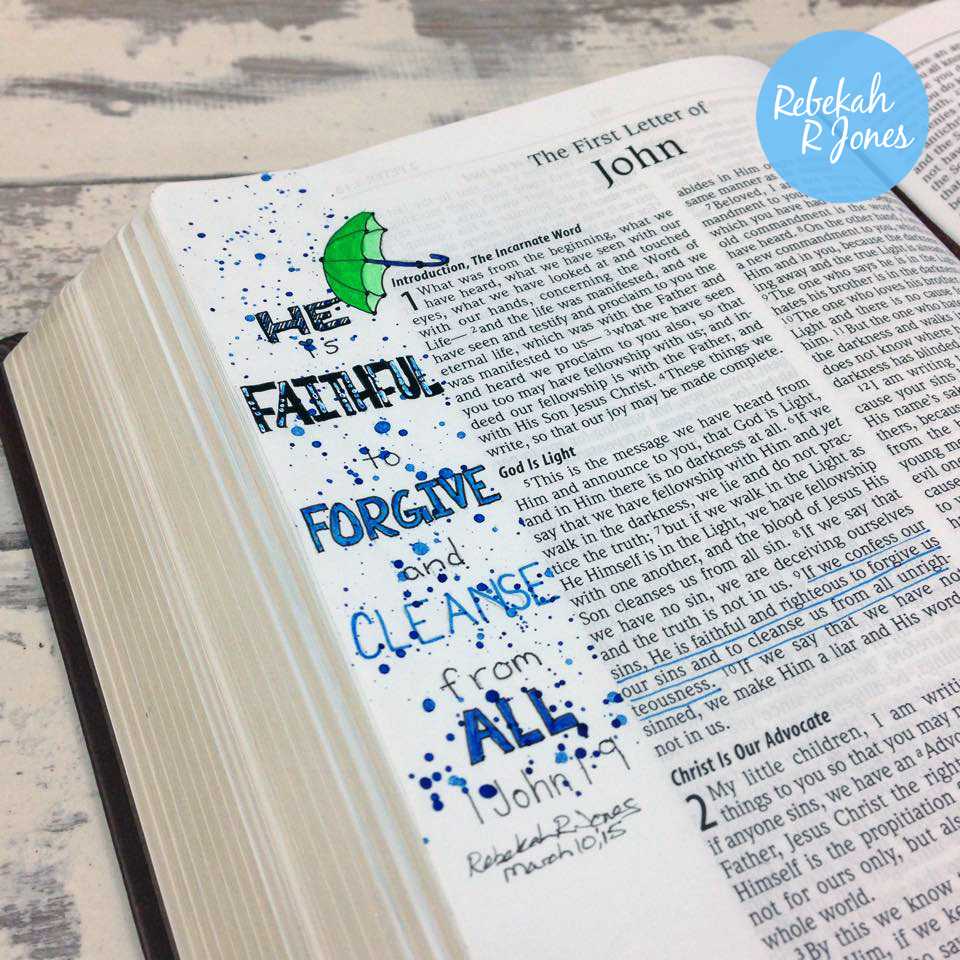 Rebekah
R Jones
The First Letter of
John
HE
is
FAITHFUL
to
FORGIVE
and
CLEANSE
from
ALL
1 John 1-9
Rebekah R. Jones
March 10, 15
Introduction, The Incarnate Word
1 What was from the beginning, what we
have heard, what we have seen with our
eyes, what we have looked at and touched
with our hands, concerning the Word of
Life— 2and the life was manifested, and we
have seen and testify and proclaim to you the
eternal life, which was with the Father and
was manifested to us— 3what we have seen
and heard we proclaim to you also, so that
you too may have fellowship with us; and in-
deed our fellowship is with the Father, and
with His Son Jesus Christ. 4These things we
write, so that our joy may be made complete.
God Is Light
5This is the message we have heard from
Him and announce to you, that God is Light,
and in Him there is no darkness at all. 6If we
say that we have fellowship with Him and yet
walk in the darkness, we lie and do not prac-
tice the truth; 7but if we walk in the Light as
He Himself is in the Light, we have fellowship
with one another, and the blood of Jesus His
Son cleanses us from all sin. 8If we say that
we have no sin, we are deceiving ourselves
and the truth is not in us. 9If we confess our
sins, He is faithful and righteous to forgive us
our sins and to cleanse us from all unrigh-
teousness. 10If we say that we have not
sinned, we make Him a liar and His word
not in us.
Christ Is Our Advocate
2 My little children, I am writi
things to you so that you may n
if anyone sins, we have an aAdvo
Father, Jesus Christ the right
Himself is the propitiation
not for ours only, but als
whole world.
3By this we know
Him, if we ke
abides in Him o
same manner a
7Beloved, I a
mandment to yo
which you have h
old commandment is
have heard. 8On the other hand
a new commandment to you,
Him and in you, because the dark
ing away and the true Light
9The one who says he is in the
hates his brother is in the darkness
10The one who loves his brother
Light and there is no cause
him. 11But the one who ha
the darkness and walks
does not know where h
darkness has blinded
12I am writing
cause your sins
His name's sa
thers, because
from the
young me
evil one
cause
to